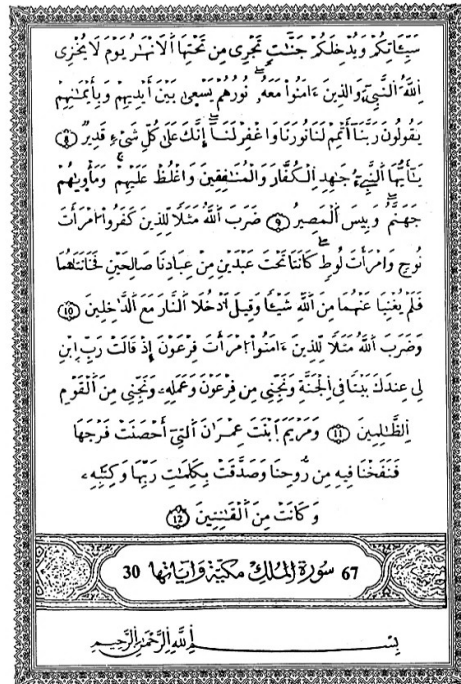 سَيِّـَٔاتِكُمْ وَيُدْخِلَكُمْ جَنَّٰتٍ تَجْرِى مِن تَحْتِهَا اَ۬لْأَنْهَٰرُ يَوْمَ لَا يُخْزِى
اِ۬للَّهُ اُ۬لنَّبِىٓءَ وَالذِينَ ءَامَنُواْ مَعَهُۥ نُورُهُمْ يَسْعَىٰ بَيْنَ أَيْدِيهِمْ وَبِأَيْمَٰنِهِمْ
يَقُولُونَ رَبَّنَآ أَتْمِمْ لَنَا نُورَنَا وَاغْفِرْ لَنَآ إِنَّكَ عَلَىٰ كُلِّ شَىْءٍ قَدِيرٌ 8
يَٰٓأَيُّهَا اَ۬لنَّبِىٓءُ جَٰهِدِ اِ۬لْكُفَّارَ وَالْمُنَٰفِقِينَ وَاغْلُظْ عَلَيْهِمْ وَمَأْوَىٰهُمْ
جَهَنَّمُ وَبِيسَ اَ۬لْمَصِيرُ 9 ضَرَبَ اَ۬للَّهُ مَثَلًا لِّلذِينَ كَفَرُواْ اُ۪مْرَأَتَ
نُوحٍ وَامْرَأَتَ لُوطٍ كَانَتَا تَحْتَ عَبْدَيْنِ مِنْ عِبَادِنَا صَٰلِحَيْنِ فَخَانَتَٰهُمَا
فَلَمْ يُغْنِيَا عَنْهُمَا مِنَ اَ۬للَّهِ شَيْـًٔا وَقِيلَ اَ۟دْخُلَا اَ۬لنَّارَ مَعَ اَ۬لدَّٰخِلِينَ 10
وَضَرَبَ اَ۬للَّهُ مَثَلًا لِّلذِينَ ءَامَنُواْ اُ۪مْرَأَتَ فِرْعَوْنَ إِذْ قَالَتْ رَبِّ اِ۪بْنِ
لِى عِندَكَ بَيْتًا فِى اِ۬لْجَنَّةِ وَنَجِّنِى مِن فِرْعَوْنَ وَعَمَلِهِۦ وَنَجِّنِى مِنَ اَ۬لْقَوْمِ
اِ۬لظَّٰلِمِينَ 11 وَمَرْيَمَ اَ۪بْنَتَ عِمْرَٰنَ اَ۬لتِىٓ أَحْصَنَتْ فَرْجَهَا
فَنَفَخْنَا فِيهِ مِن رُّوحِنَا وَصَدَّقَتْ بِكَلِمَٰتِ رَبِّهَا وَكِتَٰبِهِۦ
وَكَانَتْ مِنَ اَ۬لْقَٰنِتِينَ 12
67 سُورَةُ الْمُلْكِ مَكِّيَّة وَآيَاتُهَا 30
بِسْمِ اِ۬للَّهِ اِ۬لرَّحْمَٰنِ اِ۬لرَّحِيمِ